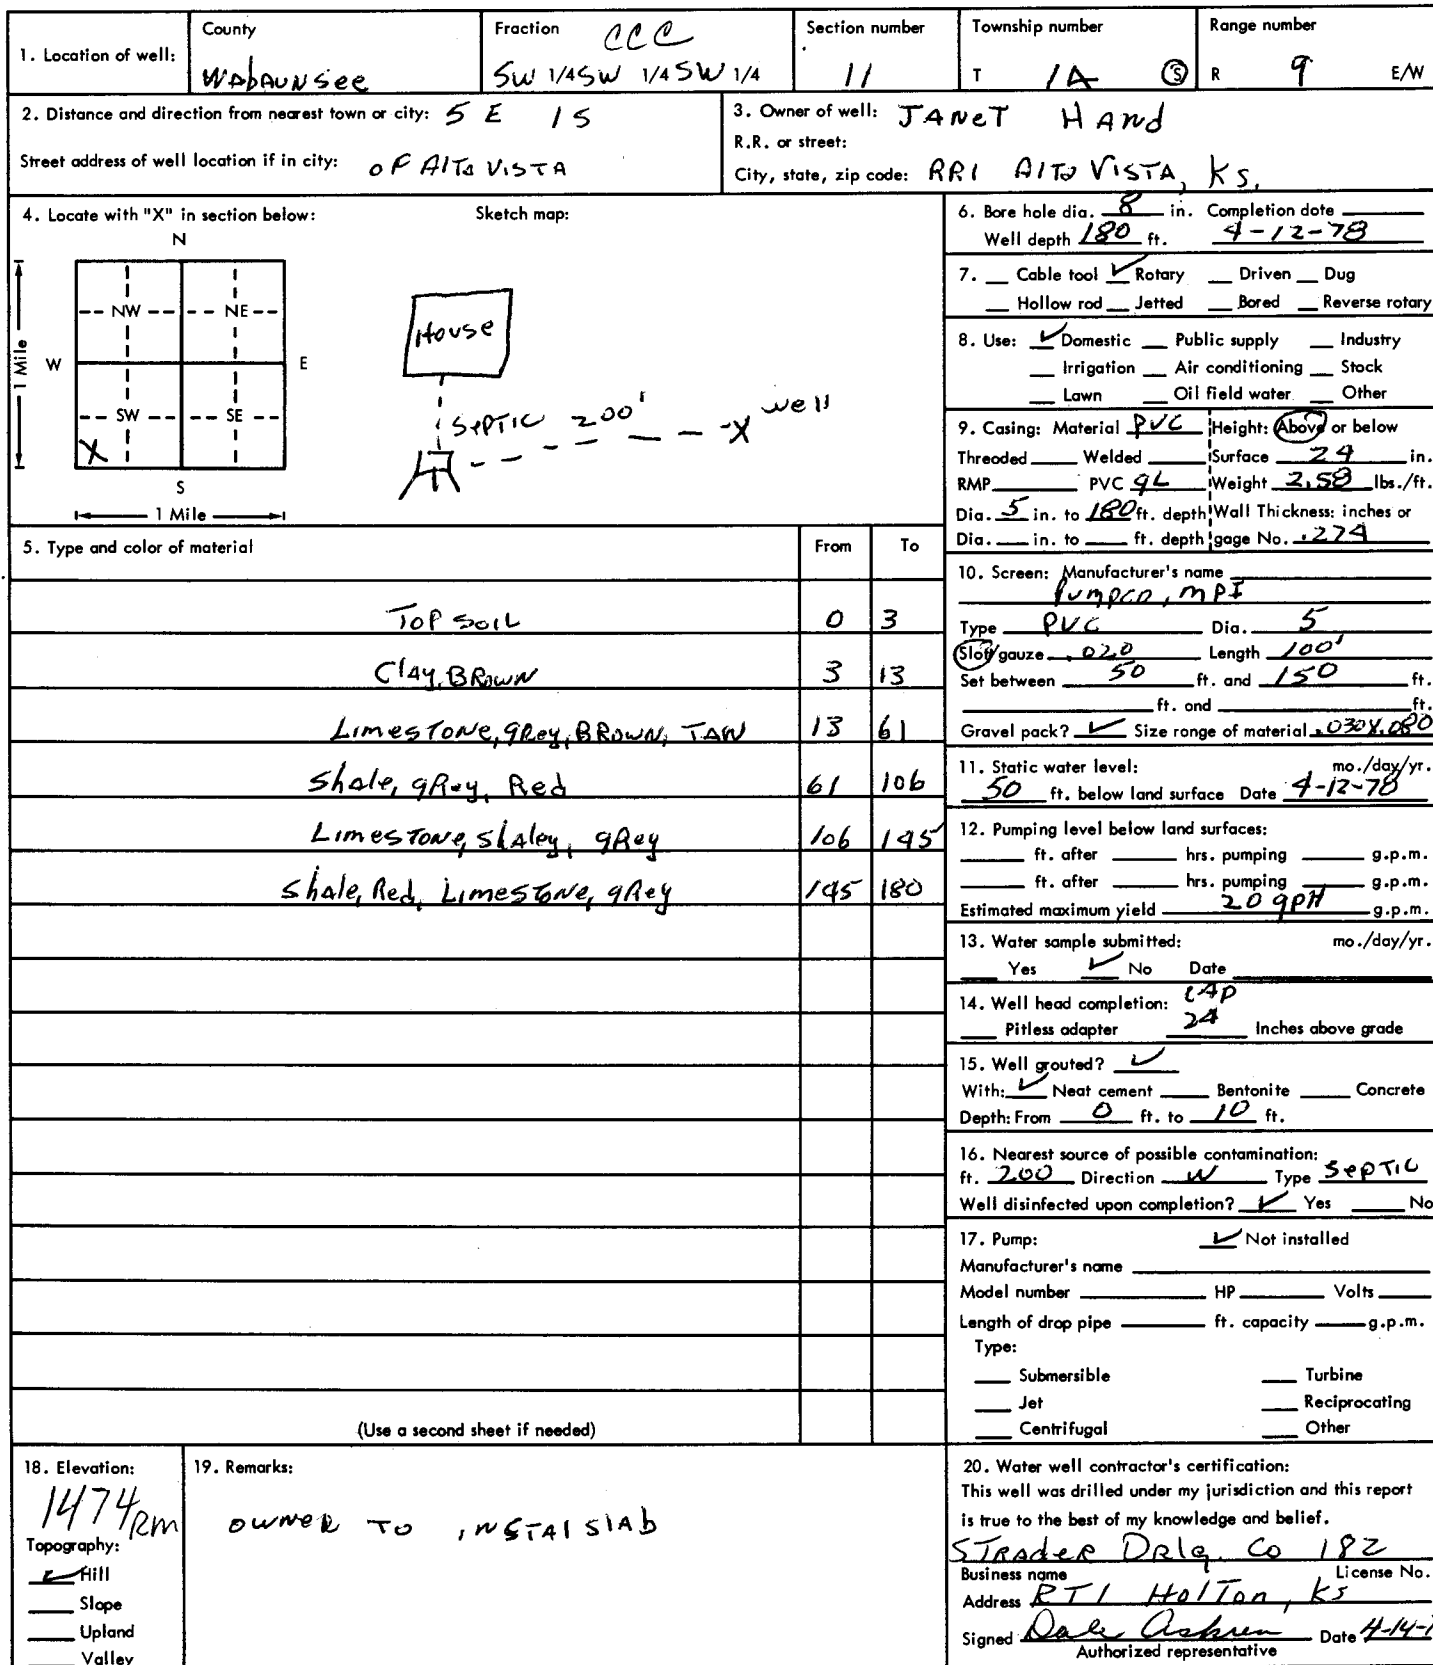 1. Location of well:
County
Wabaunsee
Fraction CCC
SW 1/4 SW 1/4 SW 1/4
Section number
11
Township number
T 14 S
Range number
R 9 E/W
2. Distance and direction from nearest town or city: 5 E 1 S
Street address of well location if in city: OF AlTa VISTA
3. Owner of well: JANeT HANd
R.R. or street:
City, state, zip code: RR1 AlTa VISTA, KS.
4. Locate with "X" in section below:
Sketch map:
N
NW NE
W E
1 Mile
SW SE
X
S
1 Mile
House
SePTIC 200'
X well
5. Type and color of material From To
Top SOIL 0 3
Clay, BROWN 3 13
LimesTONe, gRey, BROWN, TAN 13 61
Shale, gRey, Red 61 106
LimesTONe, shAley, gRey 106 145
Shale, Red, LimesTONe, gRey 145 180
(Use a second sheet if needed)
6. Bore hole dia. 8 in. Completion date
Well depth 180 ft. 4-12-78
7. Cable tool ✓ Rotary Driven Dug
Hollow rod Jetted Bored Reverse rotary
8. Use: ✓ Domestic Public supply Industry
Irrigation Air conditioning Stock
Lawn Oil field water Other
9. Casing: Material PVC Height: Above or below
Threaded Welded Surface 24 in.
RMP PVC gL Weight 2.58 lbs./ft.
Dia. 5 in. to 180 ft. depth Wall Thickness: inches or
Dia. in. to ft. depth gage No. .274
10. Screen: Manufacturer's name
Pumpco, MPI
Type PVC Dia. 5
Slot/gauze .020 Length 100'
Set between 50 ft. and 150 ft.
ft. and ft.
Gravel pack? ✓ Size range of material .030X.080
11. Static water level: mo./day/yr.
50 ft. below land surface Date 4-12-78
12. Pumping level below land surfaces:
ft. after hrs. pumping g.p.m.
ft. after hrs. pumping g.p.m.
Estimated maximum yield 20 gPH g.p.m.
13. Water sample submitted: mo./day/yr.
Yes ✓ No Date
14. Well head completion: CAP
Pitless adapter 24 Inches above grade
15. Well grouted? ✓
With: ✓ Neat cement Bentonite Concrete
Depth: From 0 ft. to 10 ft.
16. Nearest source of possible contamination:
ft. 200 Direction W Type SePTIC
Well disinfected upon completion? ✓ Yes No
17. Pump: ✓ Not installed
Manufacturer's name
Model number HP Volts
Length of drop pipe ft. capacity g.p.m.
Type:
Submersible Turbine
Jet Reciprocating
Centrifugal Other
18. Elevation:
1474
Topography:
✓ Hill
Slope
Upland
Valley
19. Remarks:
OWNER TO INSTAl SlAb
20. Water well contractor's certification:
This well was drilled under my jurisdiction and this report
is true to the best of my knowledge and belief.
STRAdeR DRlg. Co 182
Business name License No.
Address RT1 HolTon, KS
Signed Dale Date 4-14-7
Authorized representative